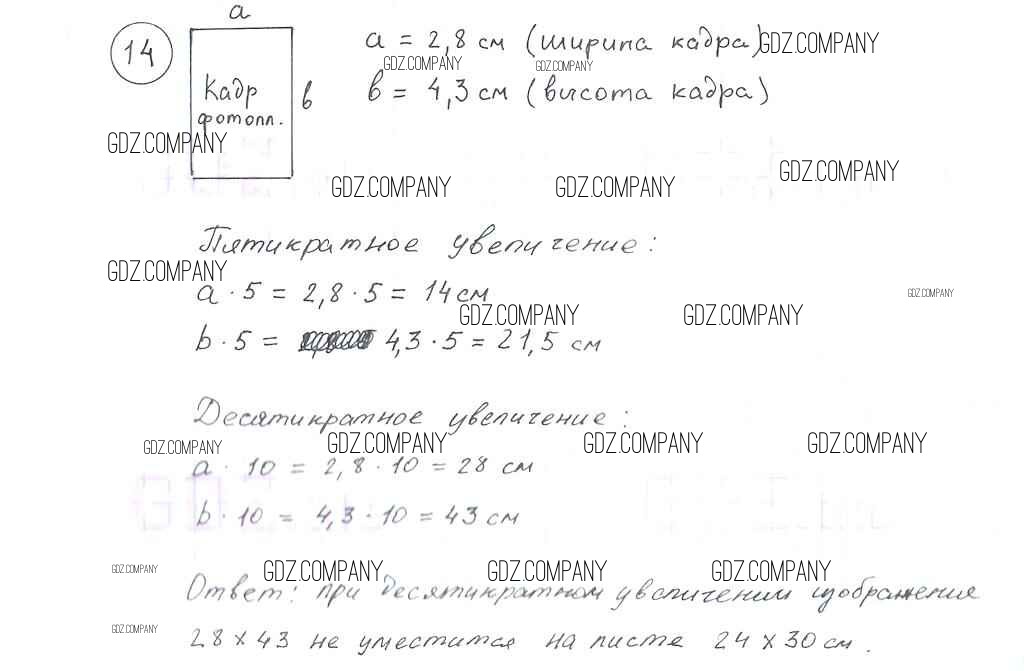 a
14
a = 2,8 см (ширина кадра) GDZ.COMPANY
GDZ.COMPANY GDZ.COMPANY
Кадр
фотопл.
в
в = 4,3 см (высота кадра)
GDZ.COMPANY
GDZ.COMPANY GDZ.COMPANY GDZ.COMPANY
Пятикратное увеличение:
GDZ.COMPANY
a · 5 = 2,8 · 5 = 14 см
GDZ.COMPANY
GDZ.COMPANY GDZ.COMPANY
b · 5 = 4,3 · 5 = 21,5 см
Десятикратное увеличение:
GDZ.COMPANY GDZ.COMPANY GDZ.COMPANY GDZ.COMPANY
a · 10 = 2,8 · 10 = 28 см
b · 10 = 4,3 · 10 = 43 см
GDZ.COMPANY GDZ.COMPANY GDZ.COMPANY GDZ.COMPANY
Ответ: при десятикратном увеличении изображения
GDZ.COMPANY
28 х 43 не уместится на листе 24 х 30 см.